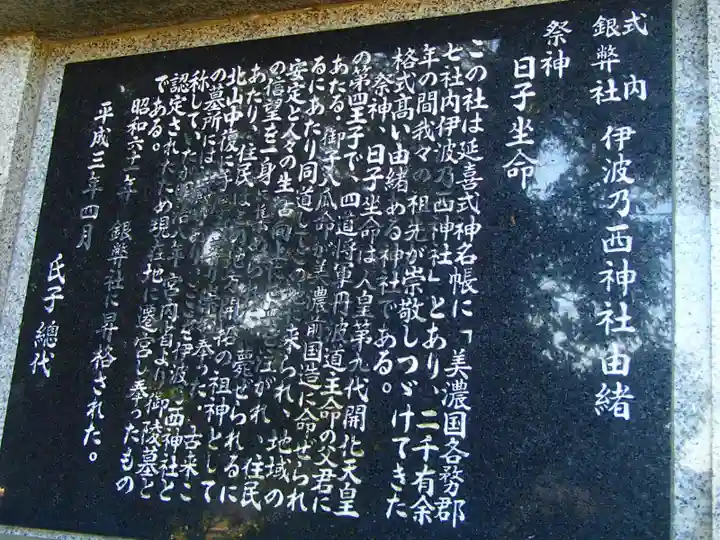 式内
銀幣社 伊波乃西神社由緒
祭神
日子坐命
この社は延喜式神名帳に「美濃国各務郡
七社内伊波乃西神社」とあり、二千有余
年の間我々の祖先が崇敬しつゞけてきた
格式高い由緒ある神社である。
祭神、日子坐命は人皇第九代開化天皇
の第四王子で、四道将軍丹波道主命の父君に
あたる。御子八瓜命が美濃前国造に命ぜられ
るにあたり同道してこの地に来られ、地域の
安定と人々の生活向上に
の信望を一身に集められ
注がれ、住民
あたり、住民は
薨ぜられるに
北山中腹に
地方開拓の祖神として
の墓所には
奉った。古来こ
称していたが明治八年、宮内省より御陵墓と
伊波乃西神社と
認定されたため現在地に遷宮し奉ったもの
である。
昭和六十一年 銀幣社に昇格された。
平成三年四月
氏子總代